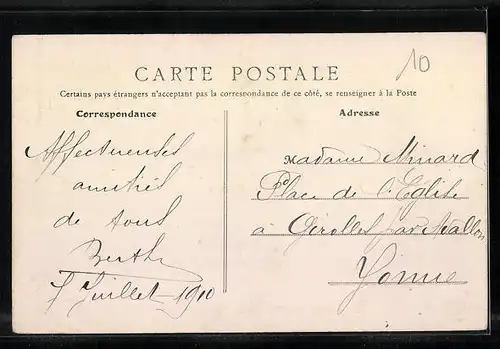 10
CARTE POSTALE
Certains pays étrangers n'acceptant pas la correspondance de ce côté, se renseigner à la Poste
Correspondance
Adresse
Affectueuses
amitiés
de tous
Berthe
Juillet 1910
Madame Minard
Place de l'Eglise
à Girolles par Avallon
Yonne